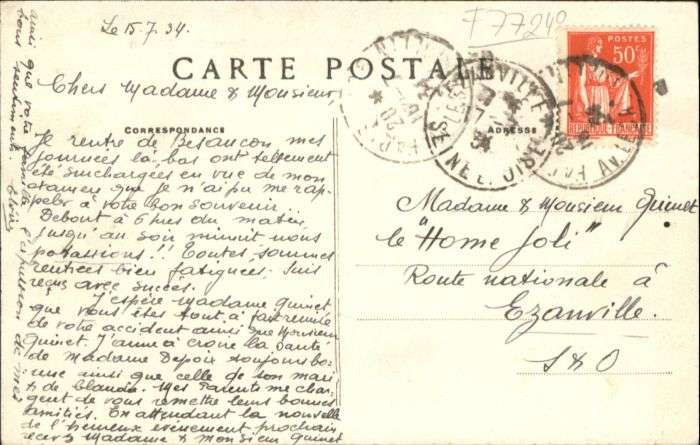 Le 15.7.34.
F77240
CARTE POSTALE
CORRESPONDANCE
ADRESSE
POSTES
50c
REPUBLIQUE FRANÇAISE
SEINE ET OISE
Chers Madame & Monsieur,
Je rentre de Besançon, mes
journées là bas ont tellement
été surchargées en vue de mon
examen que je n'ai pu me rap-
peler à votre bon souvenir.
Debout à 5 hres du matin
jusqu'au soir minuit nous
potassions!! Toutes sommes
rentrées bien fatiguées. Suis
reçue avec succès.
J'espère Madame Guinet
que vous êtes tout à fait remise
de votre accident ainsi que Monsieur
Guinet. J'aime à croire la santé
de Madame Depoix toujours bo-
nne ainsi que celle de son mari
& de Claude. Mes Parents me char-
gent de vous remettre leurs bonnes
amitiés. En attendant la nouvelle
de l'heureux évènement prochain
recevez Madame & Monsieur Guinet
ainsi que votre famille l'expression de mes
bons sentiments.
Madame & Monsieur Guinet
le "Home Joli"
Route nationale à
Ezanville.
S & O